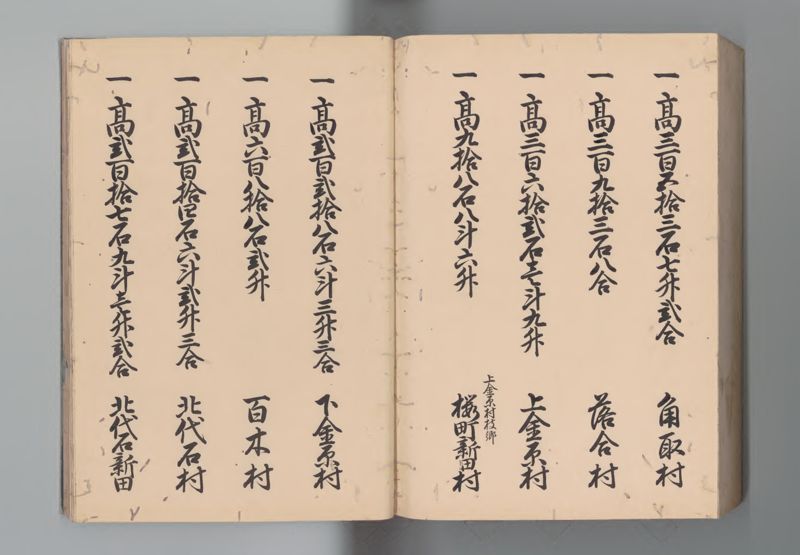 一高三百五拾三石七升弐合 角取村
一高三百九拾三石八合 落合村
一高三百六拾弐石壱斗九升 上金原村
一高九拾八石八斗六升 上金原村枝郷 桜町新田村
一高弐百弐拾八石六斗三升三合 下金原村
一高六百八拾八石弐升 百木村
一高弐百拾四石六斗弐升三合 北代石村
一高弐百拾七石九斗壱升弐合 北代石新田